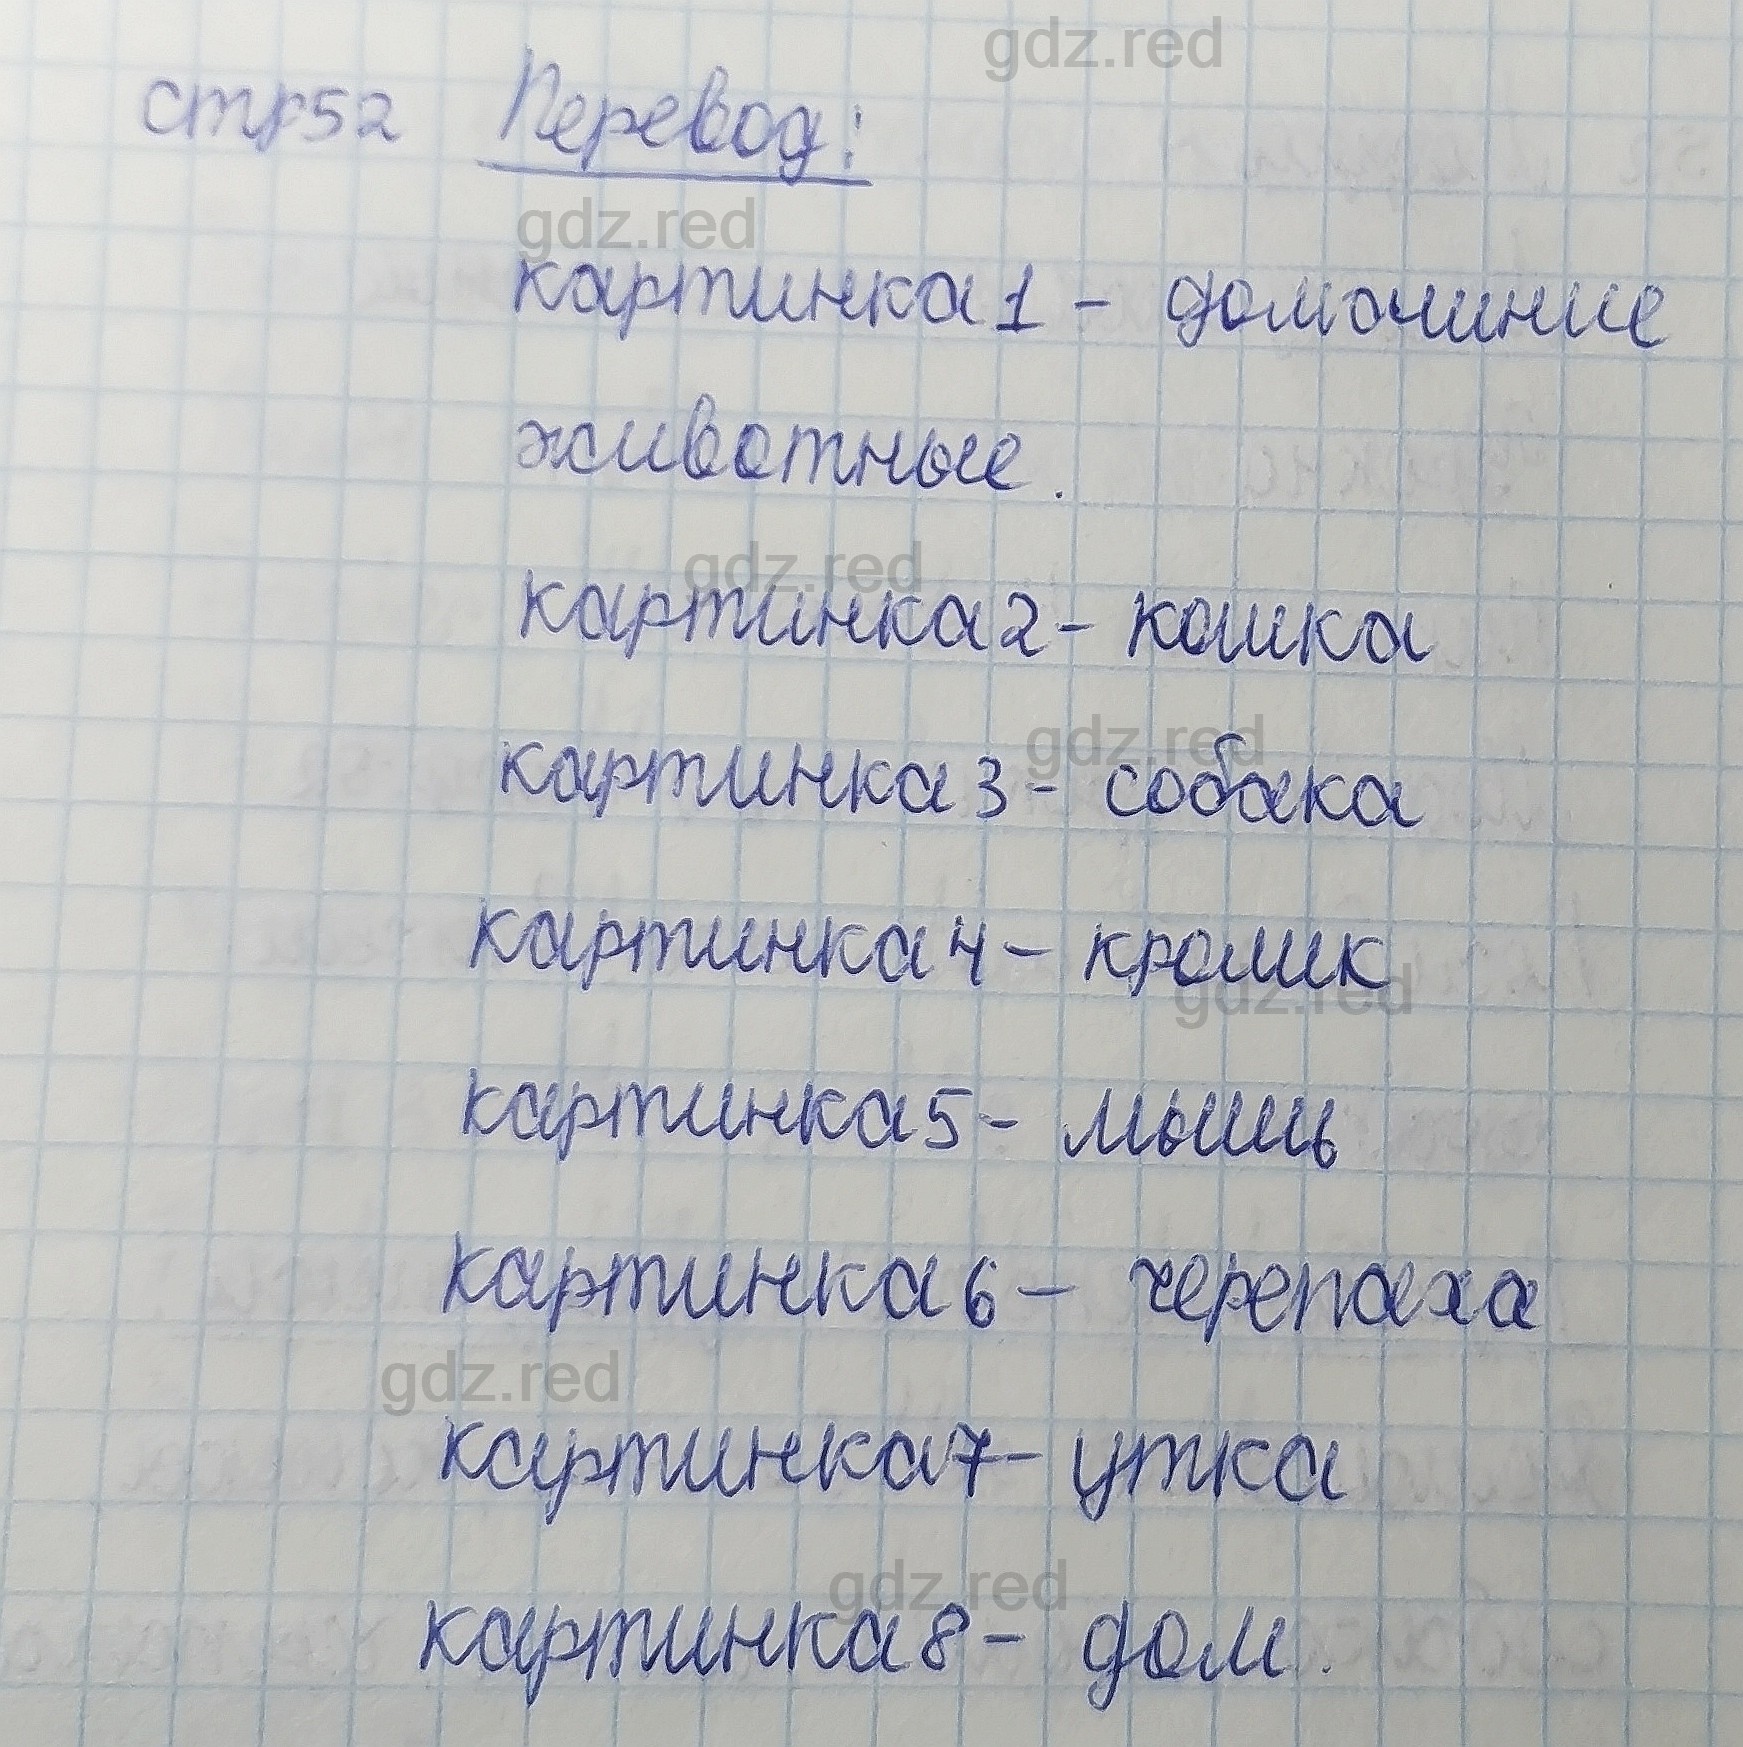 gdz.red
стр52 Перевод:
gdz.red
картинка 1 - домашние
животные.
gdz.red
картинка 2 - кошка
gdz.red
картинка 3 - собака
картинка 4 - кролик
gdz.red
картинка 5 - мышь
картинка 6 - черепаха
gdz.red
картинка 7 - утка
gdz.red
картинка 8 - дом.